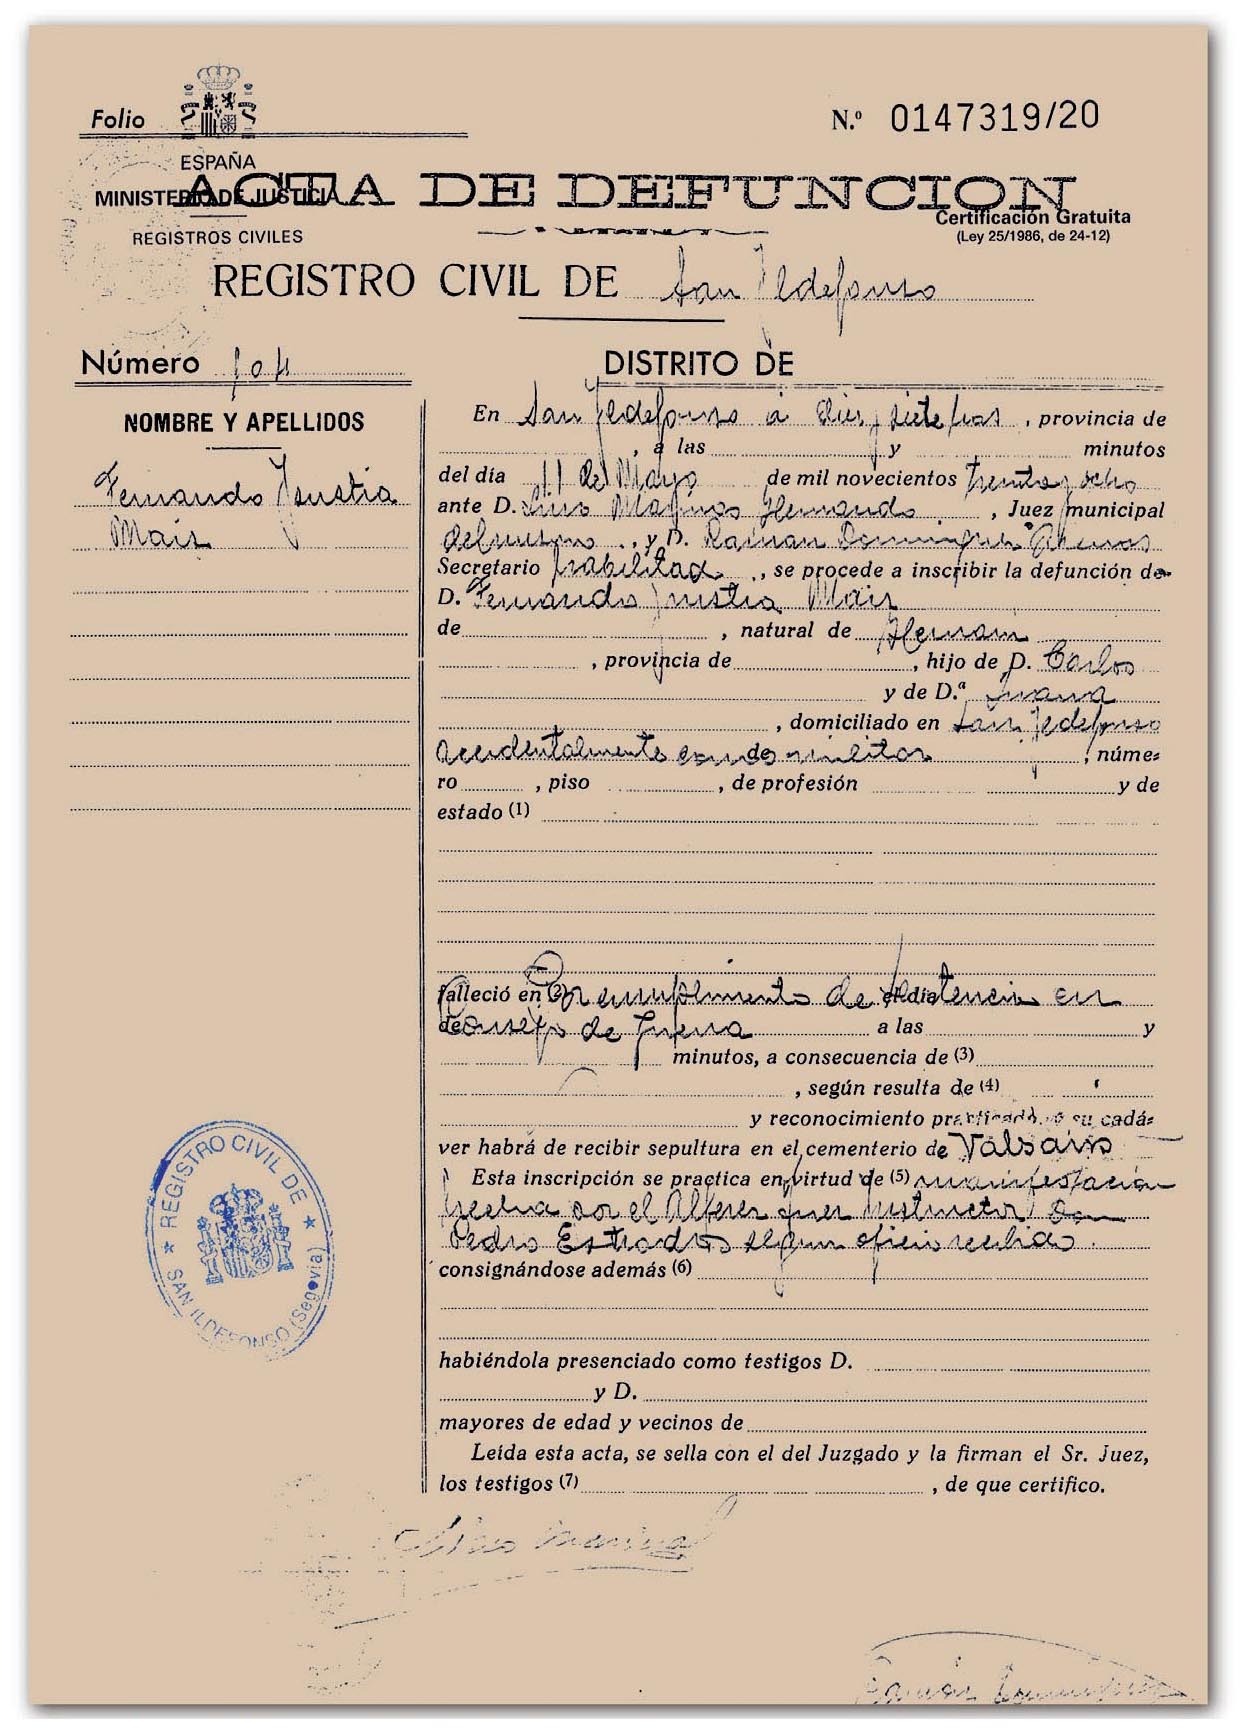 Folio
N.º 0147319/20
ESPAÑA
MINISTERIO DE JUSTICIA
REGISTROS CIVILES
ACTA DE DEFUNCION
Certificación Gratuita
(Ley 25/1986, de 24-12)
REGISTRO CIVIL DE San Ildefonso
Número 104
DISTRITO DE
NOMBRE Y APELLIDOS
Fernando
En San Ildefonso a diez y siete horas, provincia de
, a las y minutos
del día 11 de Mayo de mil novecientos treinta y ocho
ante D. Hernando, Juez municipal
del mismo, y D. Ramon Dominguez
Secretario habilitado, se procede a inscribir la defunción de
D. Fernando
de , natural de Hernani
, provincia de , hijo de D. Carlos
y de D.ª Juana
, domiciliado en San Ildefonso
accidentalmente como militar, núme-
ro , piso , de profesión y de
estado (1)
falleció en (2) En cumplimiento de sentencia en el día
de Consejo de Guerra a las y
minutos, a consecuencia de (3)
, según resulta de (4)
y reconocimiento practicado, y su cadá-
ver habrá de recibir sepultura en el cementerio de Valsain
Esta inscripción se practica en virtud de (5) manifestación
hecha por el Alferez juez instructor Don
Pedro según oficio recibido.
consignándose además (6)
habiéndola presenciado como testigos D.
y D.
mayores de edad y vecinos de
Leída esta acta, se sella con el del Juzgado y la firman el Sr. Juez,
los testigos (7) , de que certifico.
REGISTRO CIVIL DE
SAN ILDEFONSO (Segovia)
Ramón Dominguez